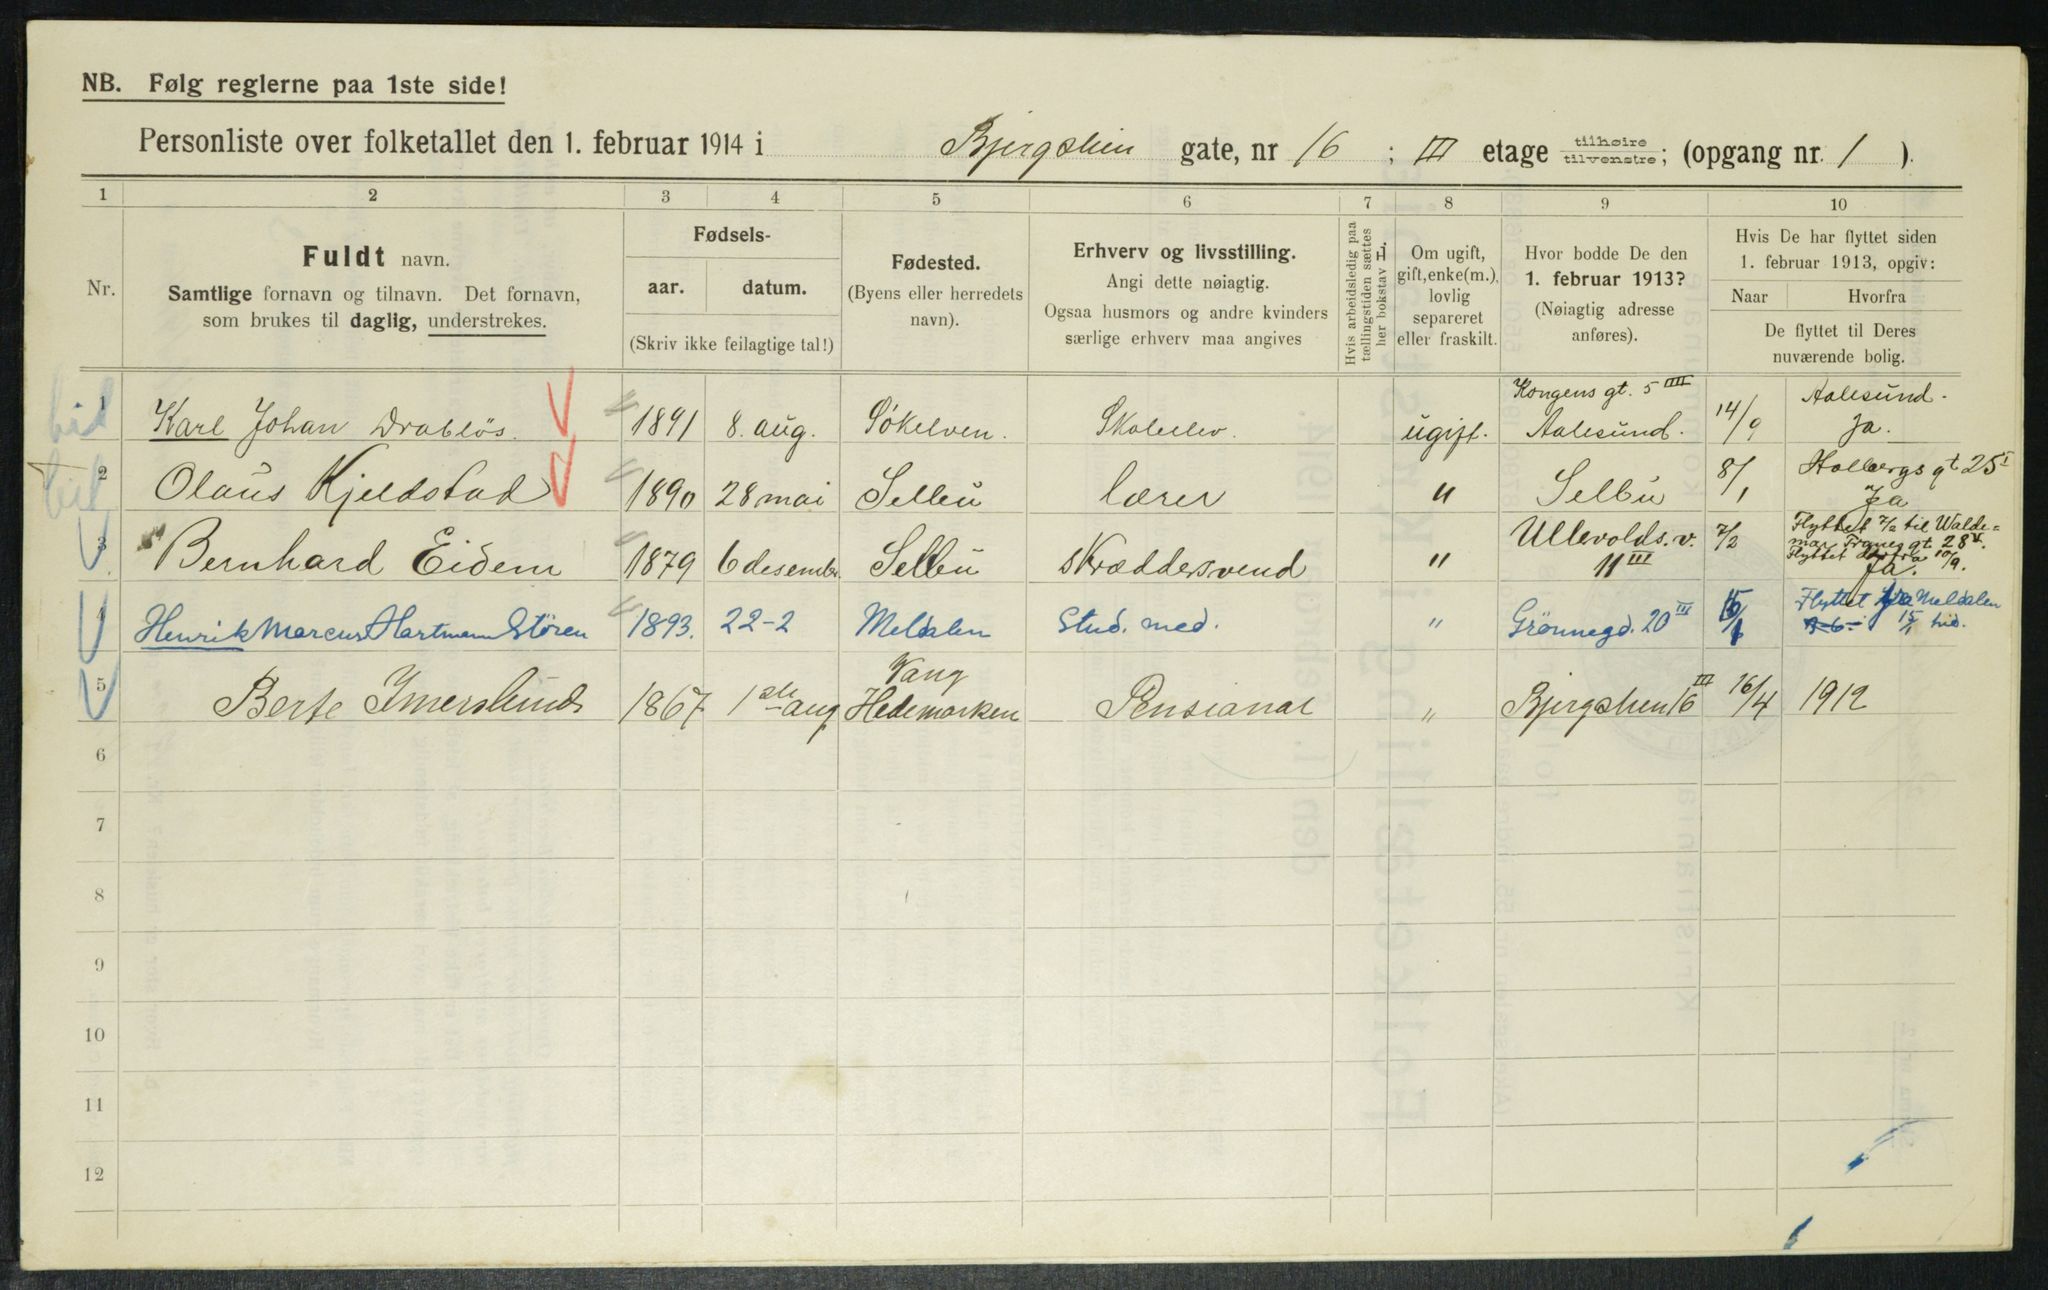 NB. Følg reglerne paa 1ste side!
Personliste over folketallet den 1. februar 1914 i Bjergstien gate, nr 16 ; III etage tilhøire tilvenstre; (opgang nr. 1 ).
1 2 3 4 5 6 7 8 9 10
Nr.
Fuldt navn.
Samtlige fornavn og tilnavn. Det fornavn,
som brukes til daglig, understrekes.
Fødsels-
aar. datum.
(Skriv ikke feilagtige tal!)
Fødested.
(Byens eller herredets
navn).
Erhverv og livsstilling.
Angi dette nøiagtig.
Ogsaa husmors og andre kvinders
særlige erhverv maa angives
Hvis arbeidsledig paa
tællingstiden sættes
her bokstav l
Om ugift,
gift, enke(m.),
lovlig
separeret
eller fraskilt.
Hvor bodde De den
1. februar 1913?
(Nøiagtig adresse
anføres).
Hvis De har flyttet siden
1. februar 1913, opgiv:
Naar Hvorfra
De flyttet til Deres
nuværende bolig.
1 Karl Johan Drabløs. 1891 8. aug. Søkelven. Skoleelev. ugift. Kongens gt. 5 IIII Aalesund. 14/9 Aalesund. Ja.
2 Olaus Kjeldstad 1890 28 mai Selbu lærer " Selbu 8/1 Holbergs gt. 25 I Ja
3 Bernhard Eidem 1879 6 desembr. Selbu skræddersvend " Ullevolds.v. 11 III 7/2 Flyttet 7/2 til Walde=
mar Tranes gt. 28 V.
Flyttet derfra 10/9.
Ja.
4 Henrik Marcus Hartmann Støren 1893. 22-2 Meldalen Stud. med. " Grønnegd. 20 III Flyttet fra Meldalen
15/1 hid.
5 Berte Imerslund 1867 1ste aug Vang Hedemarken Pensionat " Bjergstien 16 III 16/4 1912
6
7
8
9
10
11
12